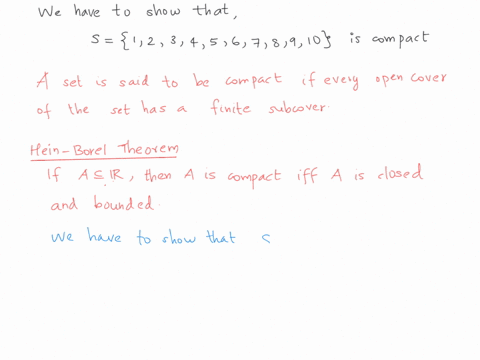 We have to show that,
S = {1, 2, 3, 4, 5, 6, 7, 8, 9, 10} is compact
A set is said to be compact if every open cover
of the set has a finite subcover.
Hein-Borel Theorem
If A ⊆ ℝ, then A is compact iff A is closed
and bounded.
We have to show that S